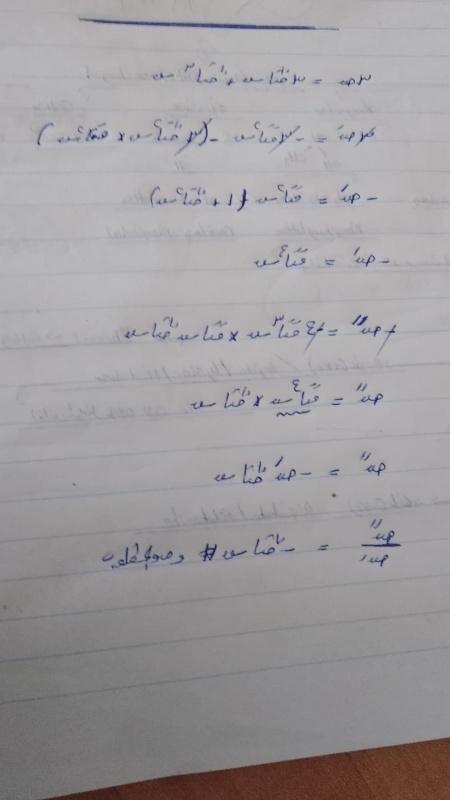 ٣ص = ٣ظتاس + ظتا٣س
٣صَ = -٣قتا٢س - (٣ظتا٢س × قتا٢س)
-صَ = قتا٢س (١ + ظتا٢س)
-صَ = قتا٤س
+صً = +٤قتا٣س × قتاس ظتاس
صً = قتا٤س × ظتاس
صً = -صَ ظتاس
صً/صَ = -ظتاس # وهو المطلوب